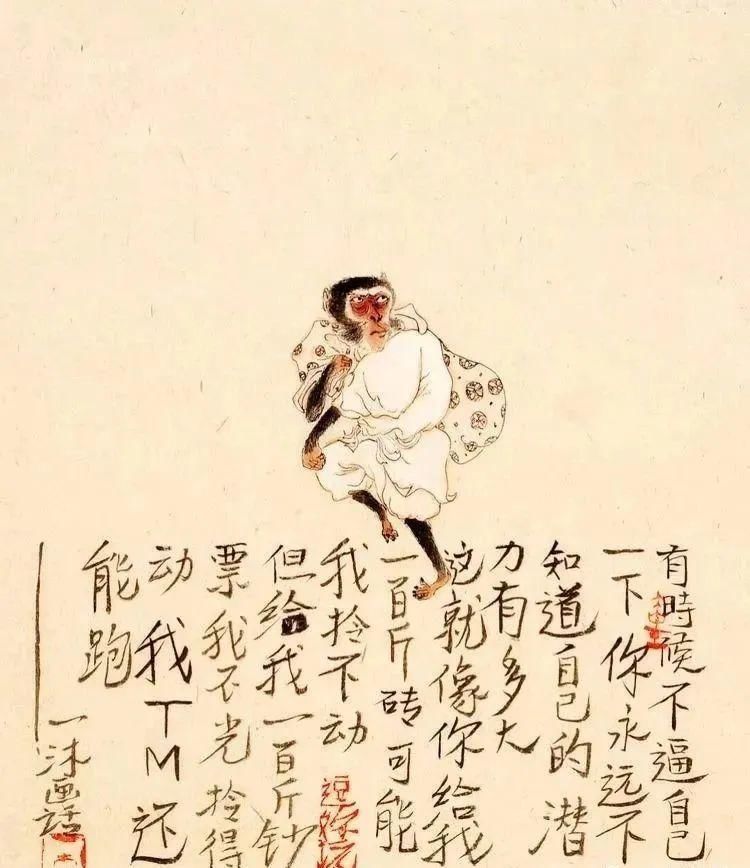 有時候不逼自己
一下 你永远不
知道自己的潜
力有多大
这就像你给我
一百斤砖可能
我拎不动
但给我一百斤钞
票我不光拎得
动 我TM还
能跑
一沐画话